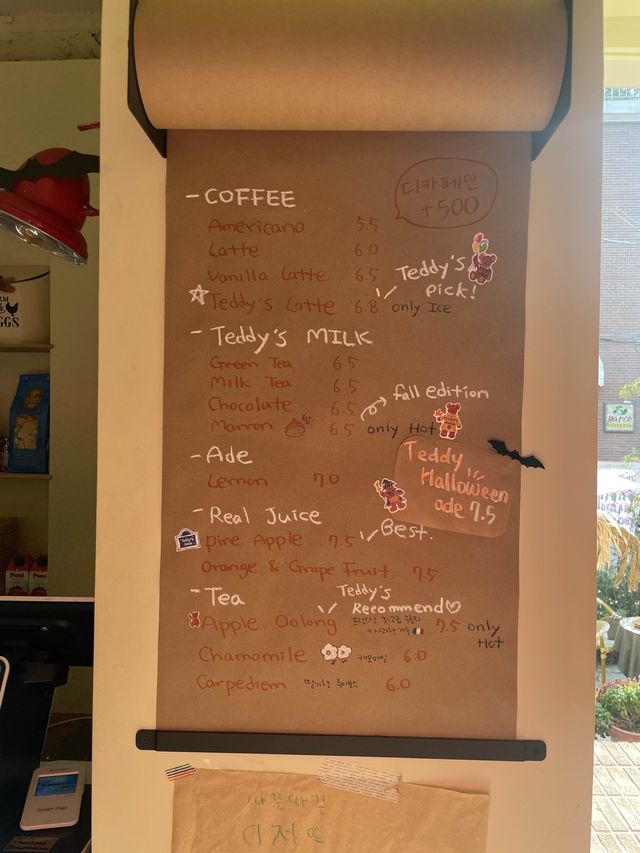 디카페인
+500
- COFFEE
Americano 5.5
Latte 6.0
Vanilla Latte 6.5
Teddy's pick!
Teddy's Latte 6.8 only Ice
- Teddy's MILK
Green Tea 6.5
Milk Tea 6.5
Chocolate 6.5
fall edition
Marron 밤 6.5 only Hot
- Ade
Lemon 7.0
Teddy
Halloween
ade 7.5
- Real Juice
Pine Apple 7.5 Best.
Orange & Grape Fruit 7.5
- Tea
Teddy's
Recommend♡
Apple Oolong 7.5 only Hot
Chamomile 캐모마일 6.0
Carpediem 6.0
parco